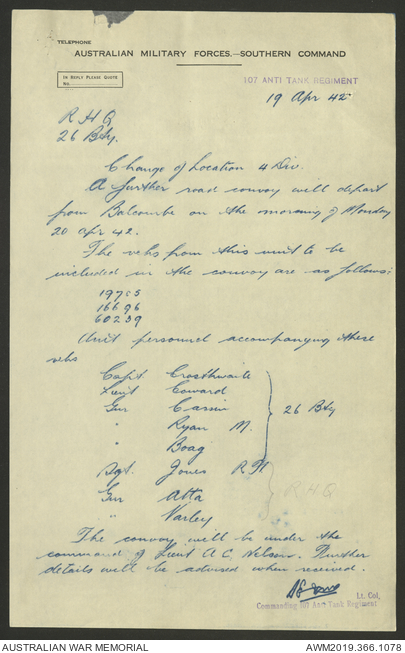 TELEPHONE
AUSTRALIAN MILITARY FORCES.—SOUTHERN COMMAND
IN REPLY PLEASE QUOTE
No.
107 ANTI TANK REGIMENT
19 Apr 42
R H Q
26 Bty.
Change of Location 4 Div.
A further road convoy will depart
from Balcombe on the morning of Monday
20 Apr 42.
The vehs from this unit to be
included in the convoy are as follows:
19785
16696
60239
Unit personnel accompanying these
vehs
Capt. Crosthwaite
Lieut Coward
Gnr Cassin
" Ryan M.
" Boag
26 Bty
Sgt. Jones R H
Gnr Atta
" Varley
R H Q
The convoy will be under the
command of Lieut A C Nelson. Further
details will be advised when received.
Lt. Col,
Commanding 107 Anti Tank Regiment
AUSTRALIAN WAR MEMORIAL
AWM2019.366.1078